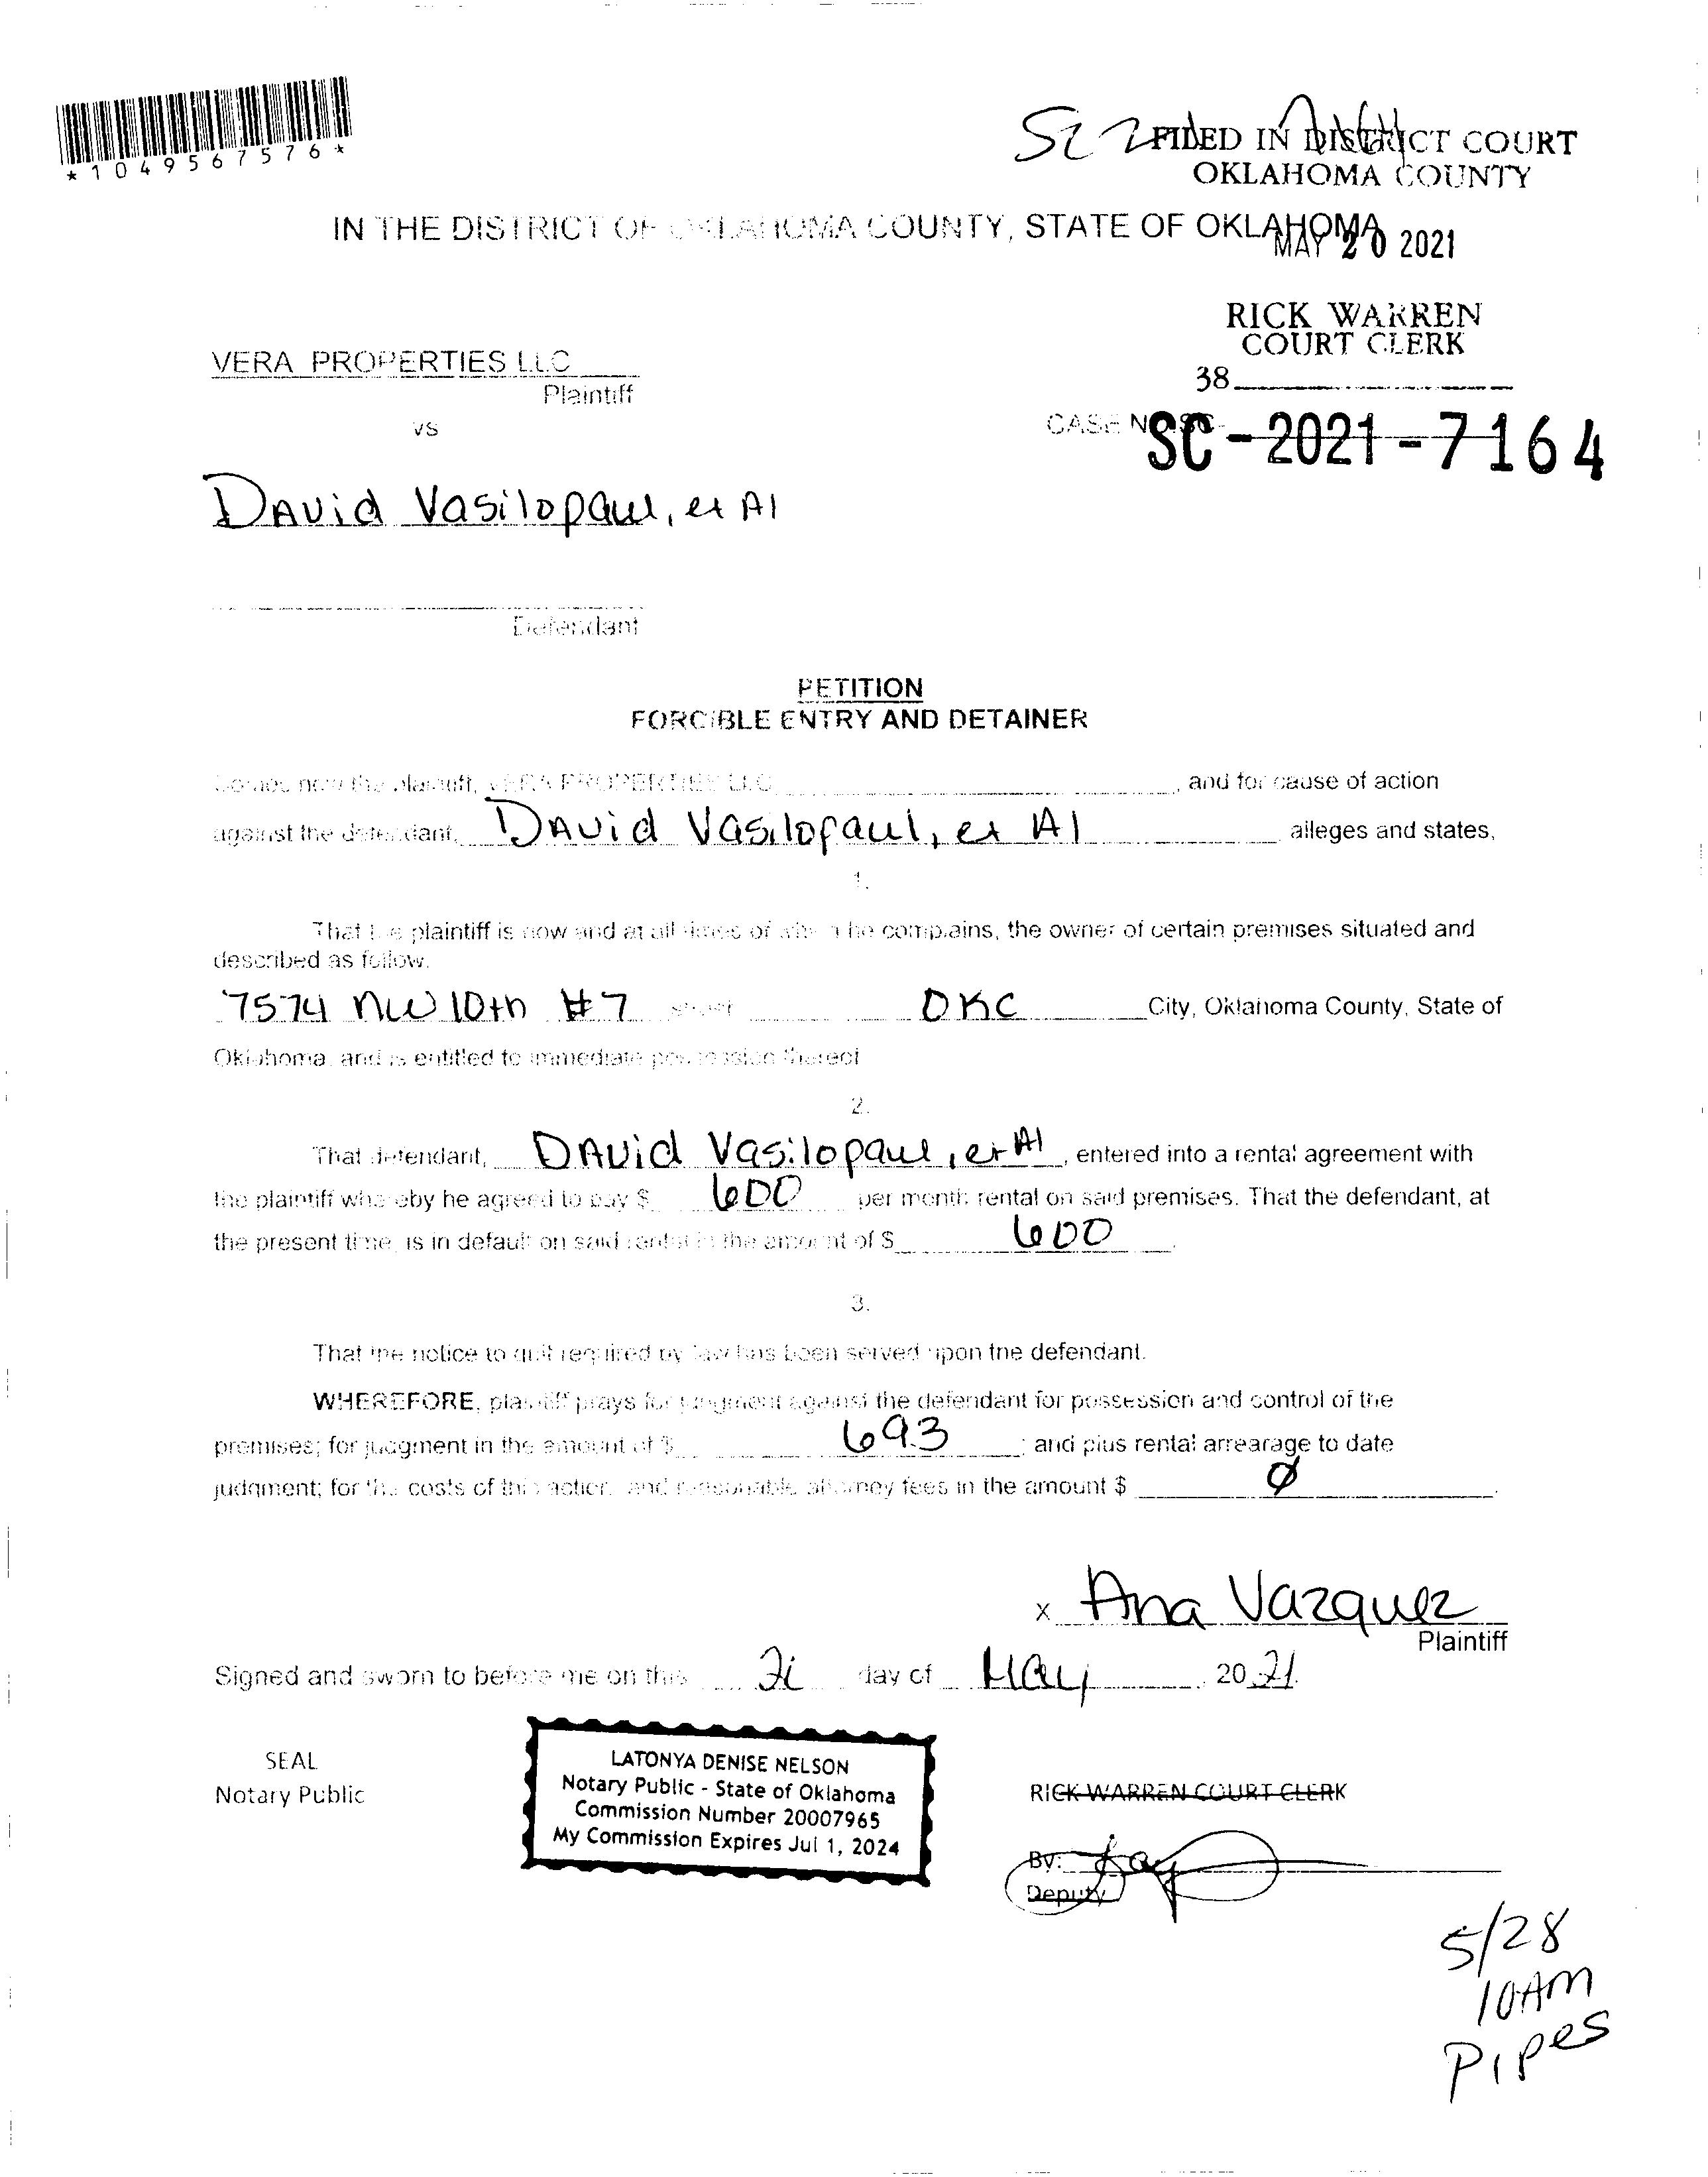 *1049567576*
FILED IN DISTRICT COURT
OKLAHOMA COUNTY
IN THE DISTRICT OF OKLAHOMA COUNTY, STATE OF OKLAHOMA
MAY 20 2021
RICK WARREN
COURT CLERK
38
VERA PROPERTIES LLC
Plaintiff
vs
CASE NO. SC-
SC-2021-7164
DAVid Vasilopaul, et Al
Defendant
PETITION
FORCIBLE ENTRY AND DETAINER
Comes now the plaintiff, VERA PROPERTIES LLC, and for cause of action
against the defendant, DAVid Vasilopaul, et Al alleges and states,
1.
That the plaintiff is now and at all times of which he complains, the owner of certain premises situated and
described as follow.
7574 NW 10th #7 street OKC City, Oklahoma County, State of
Oklahoma, and is entitled to immediate possession thereof
2.
That defendant, DAVid Vasilopaul, et Al, entered into a rental agreement with
the plaintiff whereby he agreed to pay $ 600 per month rental on said premises. That the defendant, at
the present time, is in default on said rental in the amount of $ 600.
3.
That the notice to quit required by law has been served upon the defendant.
WHEREFORE, plaintiff prays for judgment against the defendant for possession and control of the
premises; for judgment in the amount of $ 693; and plus rental arrearage to date
judgment; for the costs of this action, and reasonable attorney fees in the amount $ Ø.
x Ana Vazquez
Plaintiff
Signed and sworn to before me on this day of May, 2021.
SEAL
Notary Public
LATONYA DENISE NELSON
Notary Public - State of Oklahoma
Commission Number 20007965
My Commission Expires Jul 1, 2024
RICK WARREN COURT CLERK
By:
Deputy
5/28
10AM
Pipes